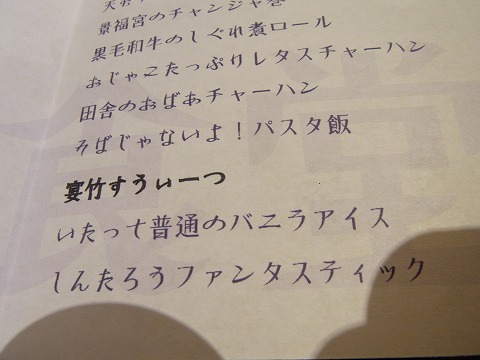 景福宮のチャンジャ巻
黒毛和牛のしぐれ煮ロール
おじゃこたっぷりレタスチャーハン
田舎のおばあチャーハン
そばじゃないよ！パスタ飯
宴竹すうぃーつ
いたって普通のバニラアイス
しんたろうファンタスティック